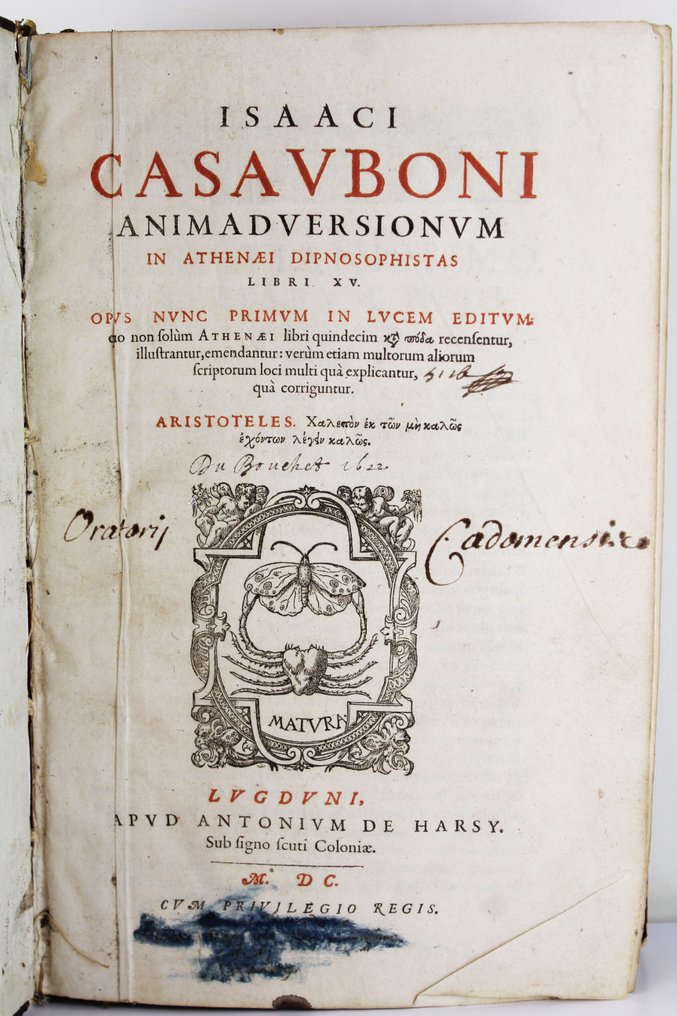 ISAACI
CASAVBONI
ANIMADVERSIONVM
IN ATHENÆI DIPNOSOPHISTAS
LIBRI XV.
OPVS NVNC PRIMVM IN LVCEM EDITVM:
quo non ſolùm ATHENÆI libri quindecim κατὰ πόδα recenſentur,
illuſtrantur, emendantur: verùm etiam multorum aliorum
ſcriptorum loci multi quà explicantur,
quà corriguntur.
ARISTOTELES. Χαλεπὸν ἐκ τῶν μὴ καλῶς
ἐχόντων λέγειν καλῶς.
Du Bouchet 1622
Oratorij Cadomensis
MATVRA
LVGDVNI,
APVD ANTONIVM DE HARSY.
Sub ſigno ſcuti Coloniæ.
M. DC.
CVM PRIVILEGIO REGIS.